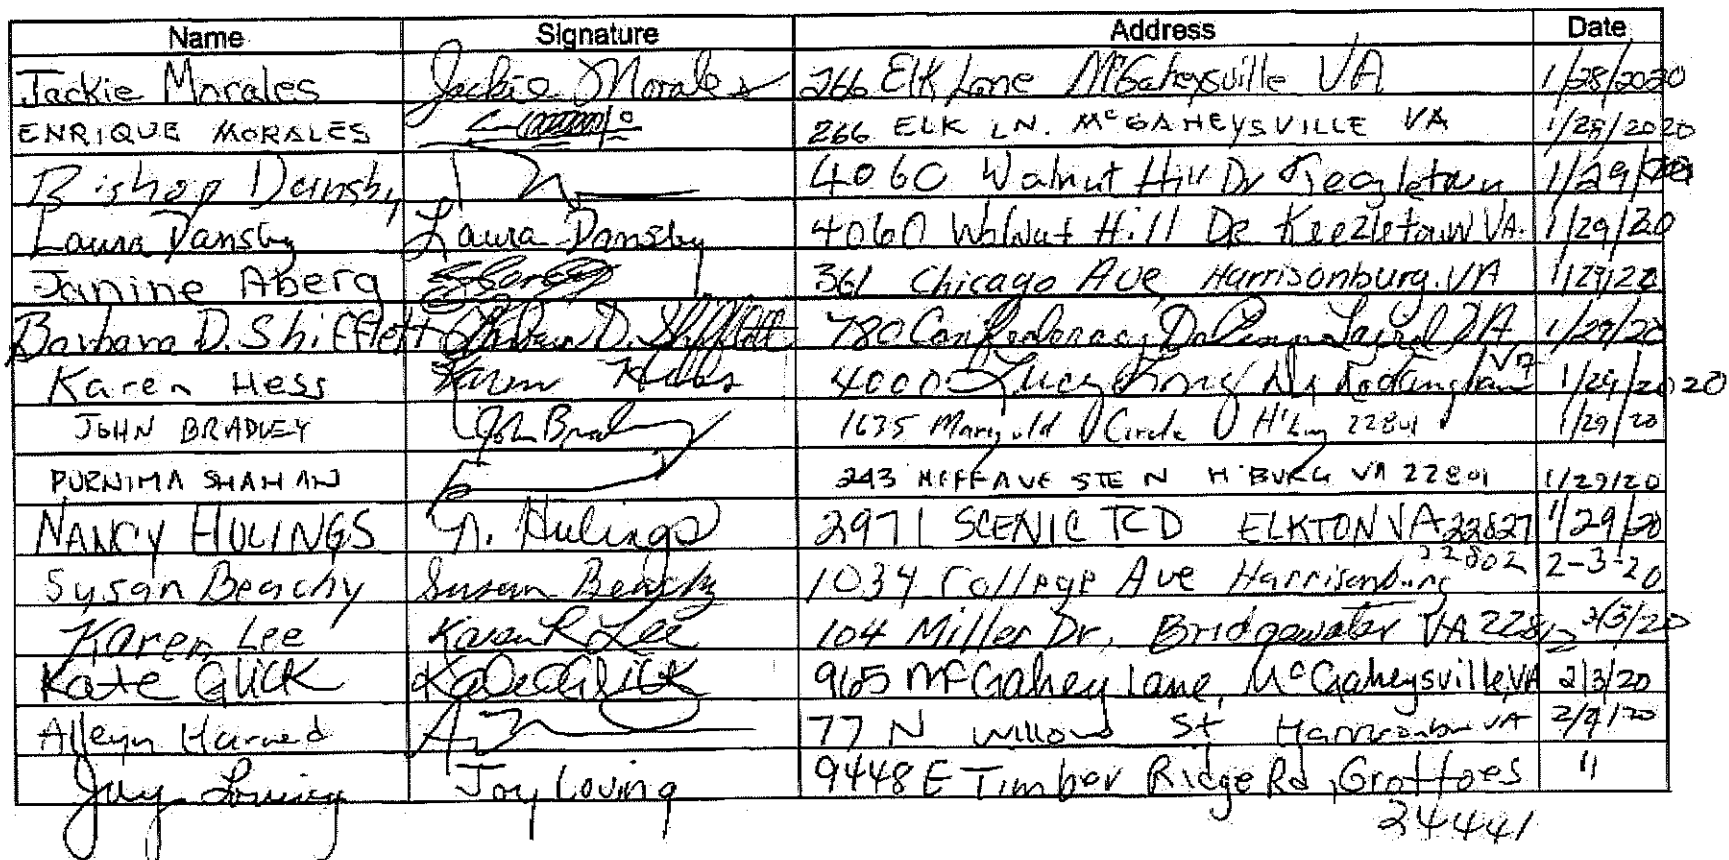 Name Signature Address Date
Jackie Morales Jackie Morales 266 Elk Lane McGaheysville VA 1/28/2020
ENRIQUE MORALES 266 ELK LN. McGAHEYSVILLE VA 1/28/2020
Bishop Dansby 4060 Walnut Hill Dr Keezletown 1/29/20
Laura Dansby Laura Dansby 4060 Walnut Hill DR Keezletown VA. 1/29/20
Janine Aberg 361 Chicago Ave Harrisonburg. VA 1/29/20
Barbara D. Shifflett Barbara D. Shifflett 780 Confederacy Dr Penn Laird, VA 1/29/20
Karen Hess Karen Hess 4000 Lucy Long Dr Rockingham VA 1/29/2020
JOHN BRADLEY John Bradley 1635 Marigold Circle H'burg 22801 1/29/20
PURNIMA SHAHAN 243 NEFF AVE STE N H'BURG VA 22801 1/29/20
NANCY HULINGS N. Hulings 2971 SCENIC ELKTON VA 22827 1/29/20
Susan Beachy Susan Beachy 1034 College Ave Harrisonburg 22802 2-3-20
Karen Lee Karen R Lee 104 Miller Dr, Bridgewater VA 22812 2/3/20
Kate Glick Kate Glick 965 McGahey Lane, McGaheysville, VA 2/3/20
Alleyn Harned 77 N Willow St Harrisonburg VA
Joy Loving Joy Loving 9448 E Timber Ridge Rd, Grottoes "
24441